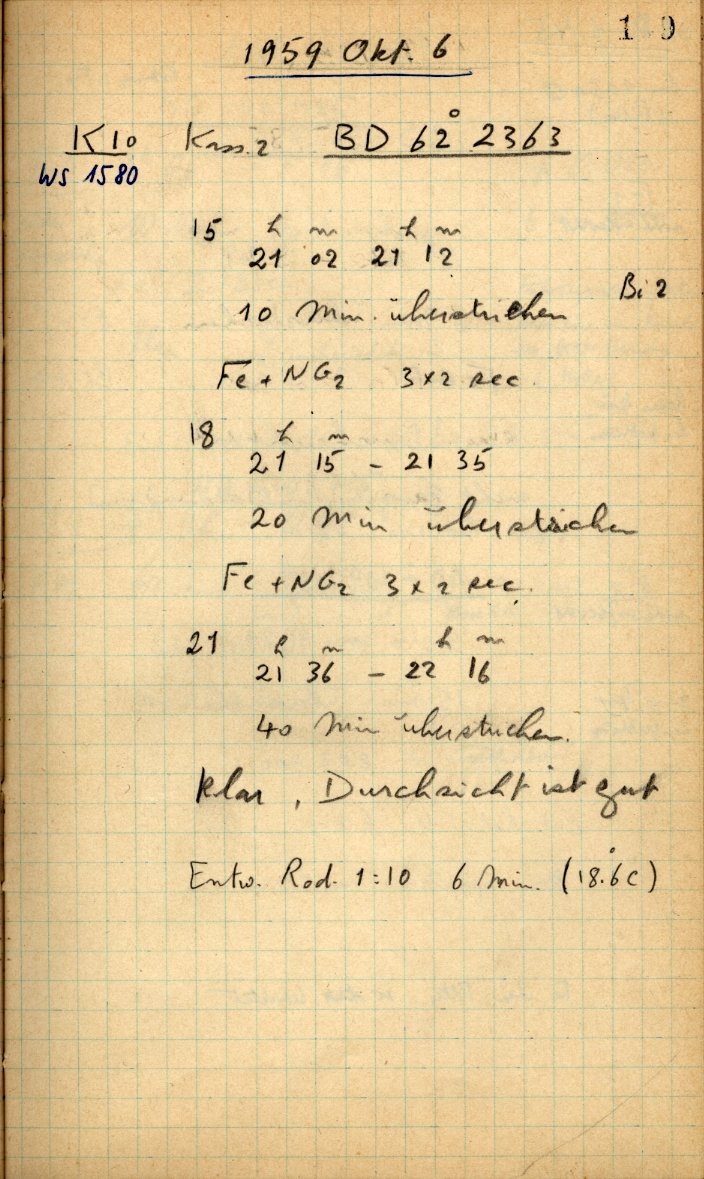 1 9
1959 Okt. 6
K10 Kass. 2 BD 62° 2363
WS 1580
15 h m h m
21 02 21 12
Bi 2
10 Min. überstrichen
Fe + NG2 3 x 2 sec.
18 h m
21 15 - 21 35
20 Min überstrichen
Fe + NG2 3 x 2 sec.
21 h m h m
21 36 - 22 16
40 Min überstrichen.
klar, Durchsicht ist gut
Entw. Rod. 1:10 6 Min. (18.°6 C)